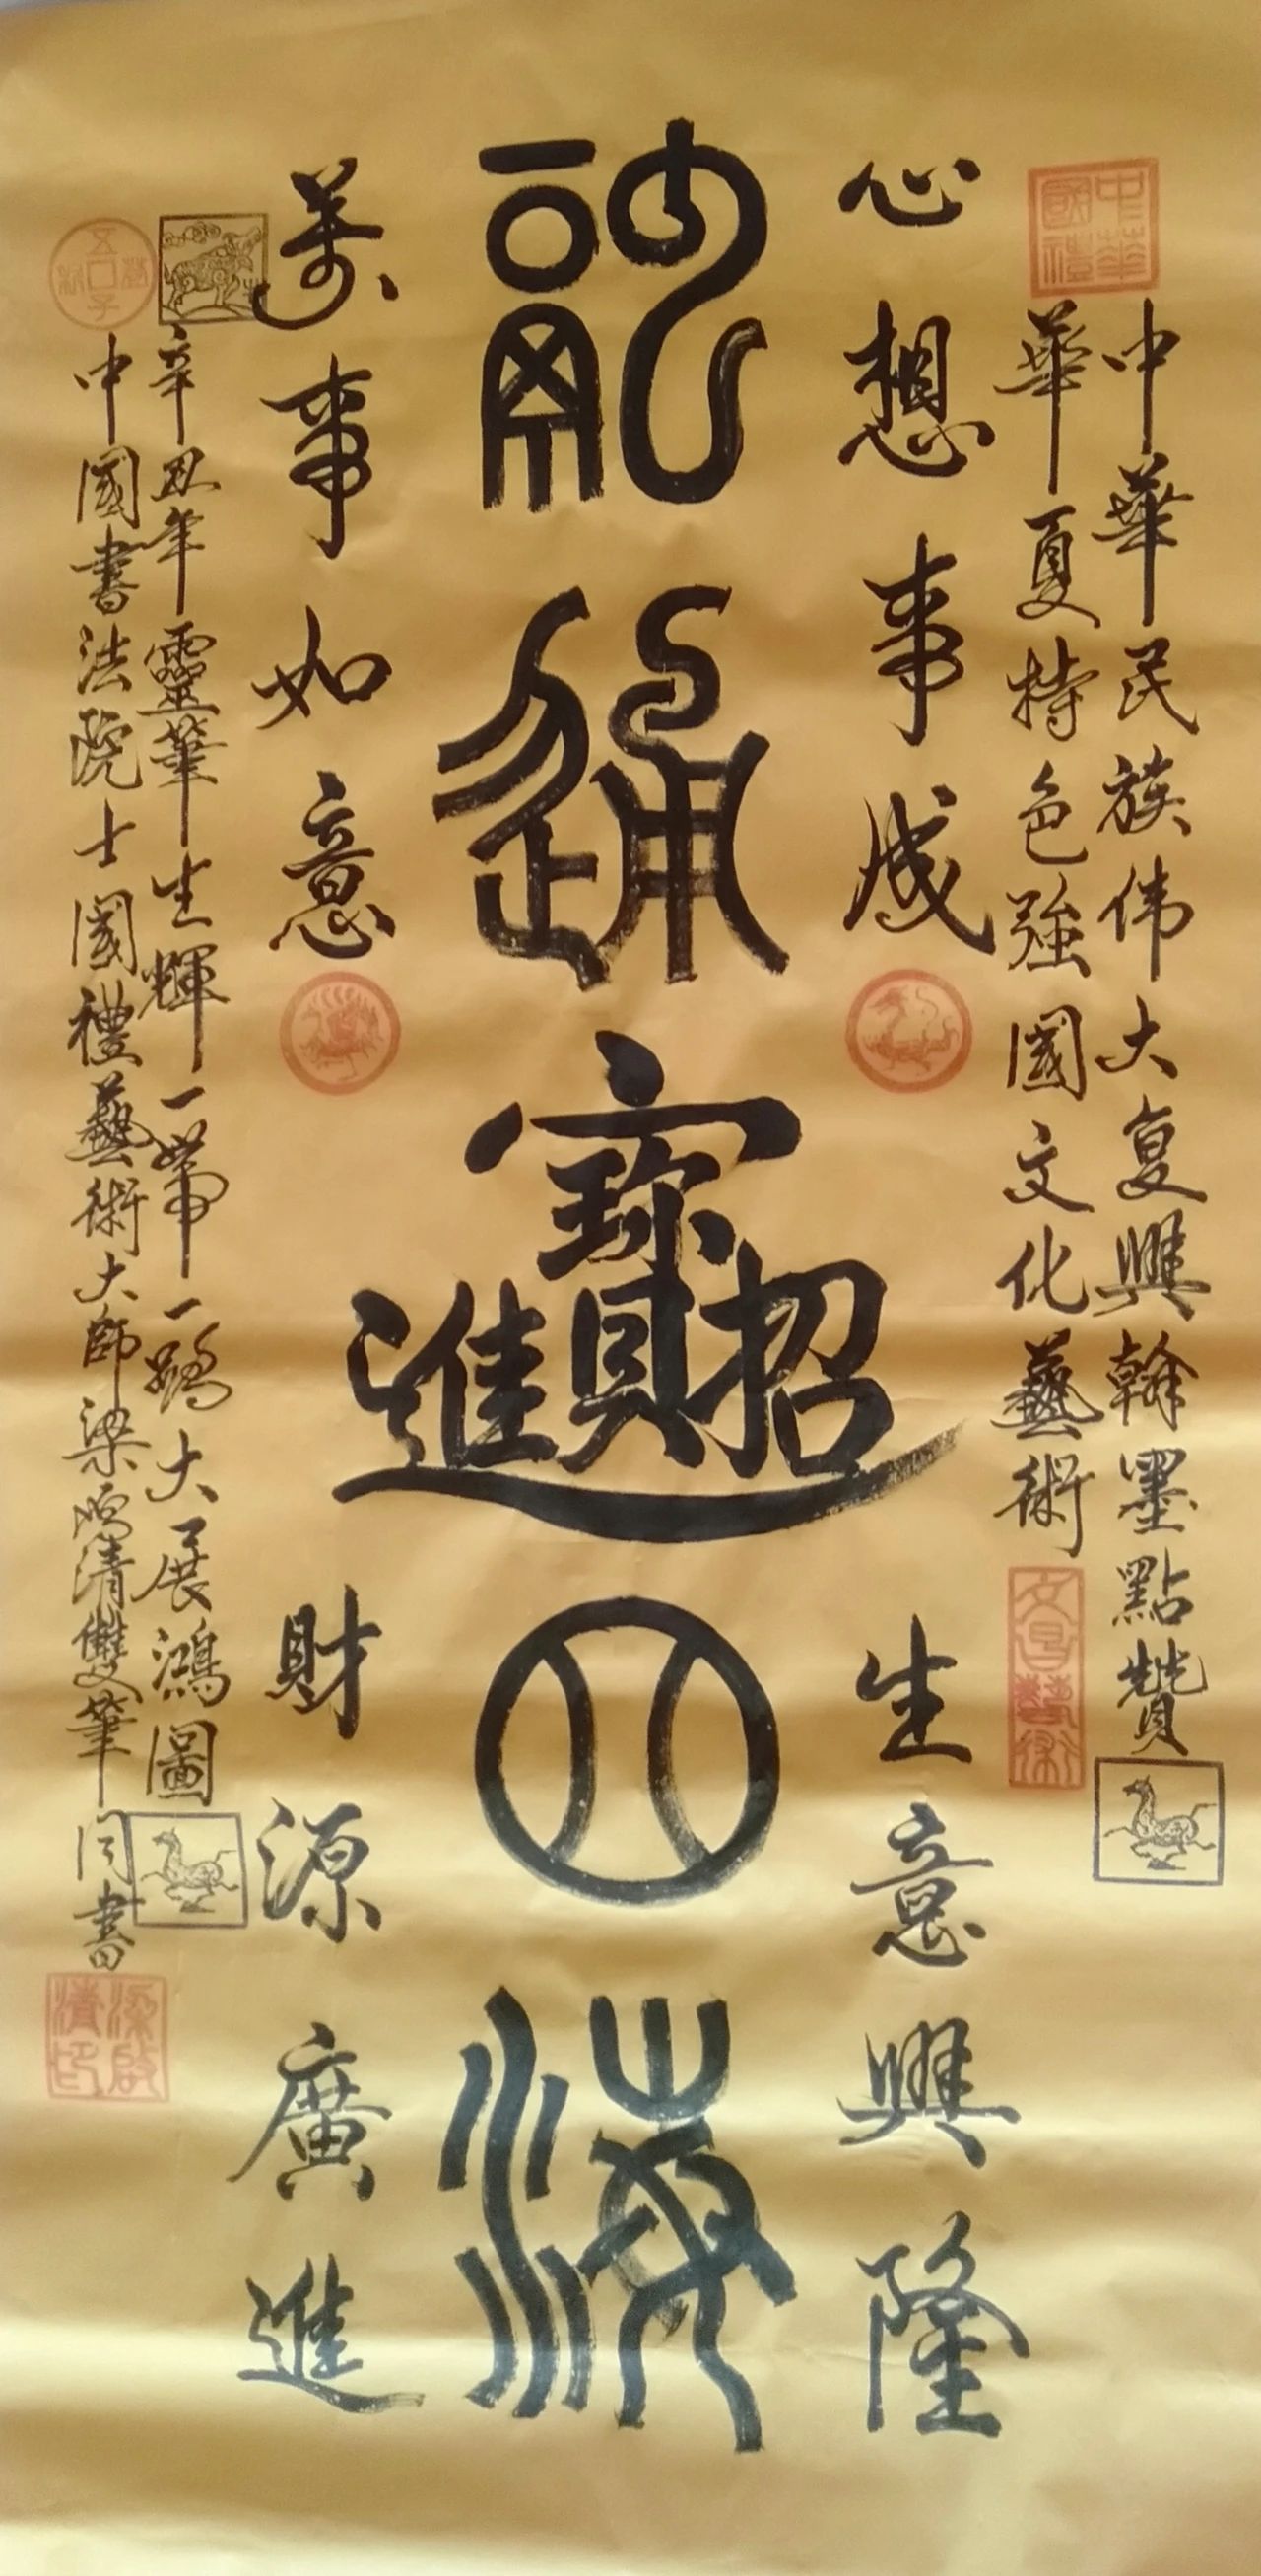 中華民族伟大复興翰墨點贊
華夏特色強國文化藝術
心想事成
生意興隆
福通
招財進寶
四海
萬事如意
財源廣進
辛丑年靈筆生輝一帶一路大展鴻圖
中國書法院士國禮藝術大師梁啟清雙筆同書
中華國禮
文昌藝術
梁啟清印